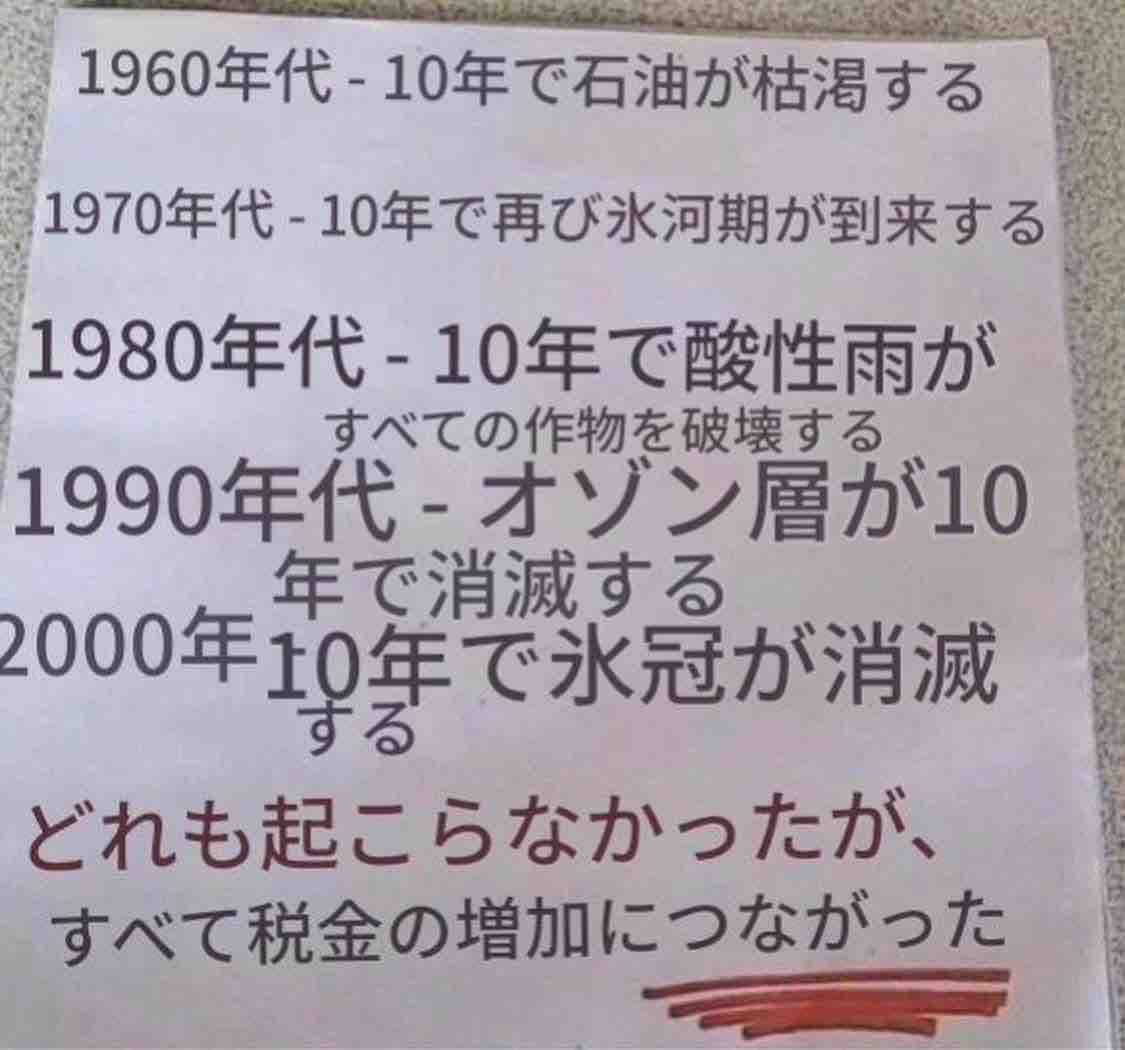 1960年代 - 10年で石油が枯渇する
1970年代 - 10年で再び氷河期が到来する
1980年代 - 10年で酸性雨が
すべての作物を破壊する
1990年代 - オゾン層が10
年で消滅する
2000年 -
10年で氷冠が消滅
する
どれも起こらなかったが、
すべて税金の増加につながった